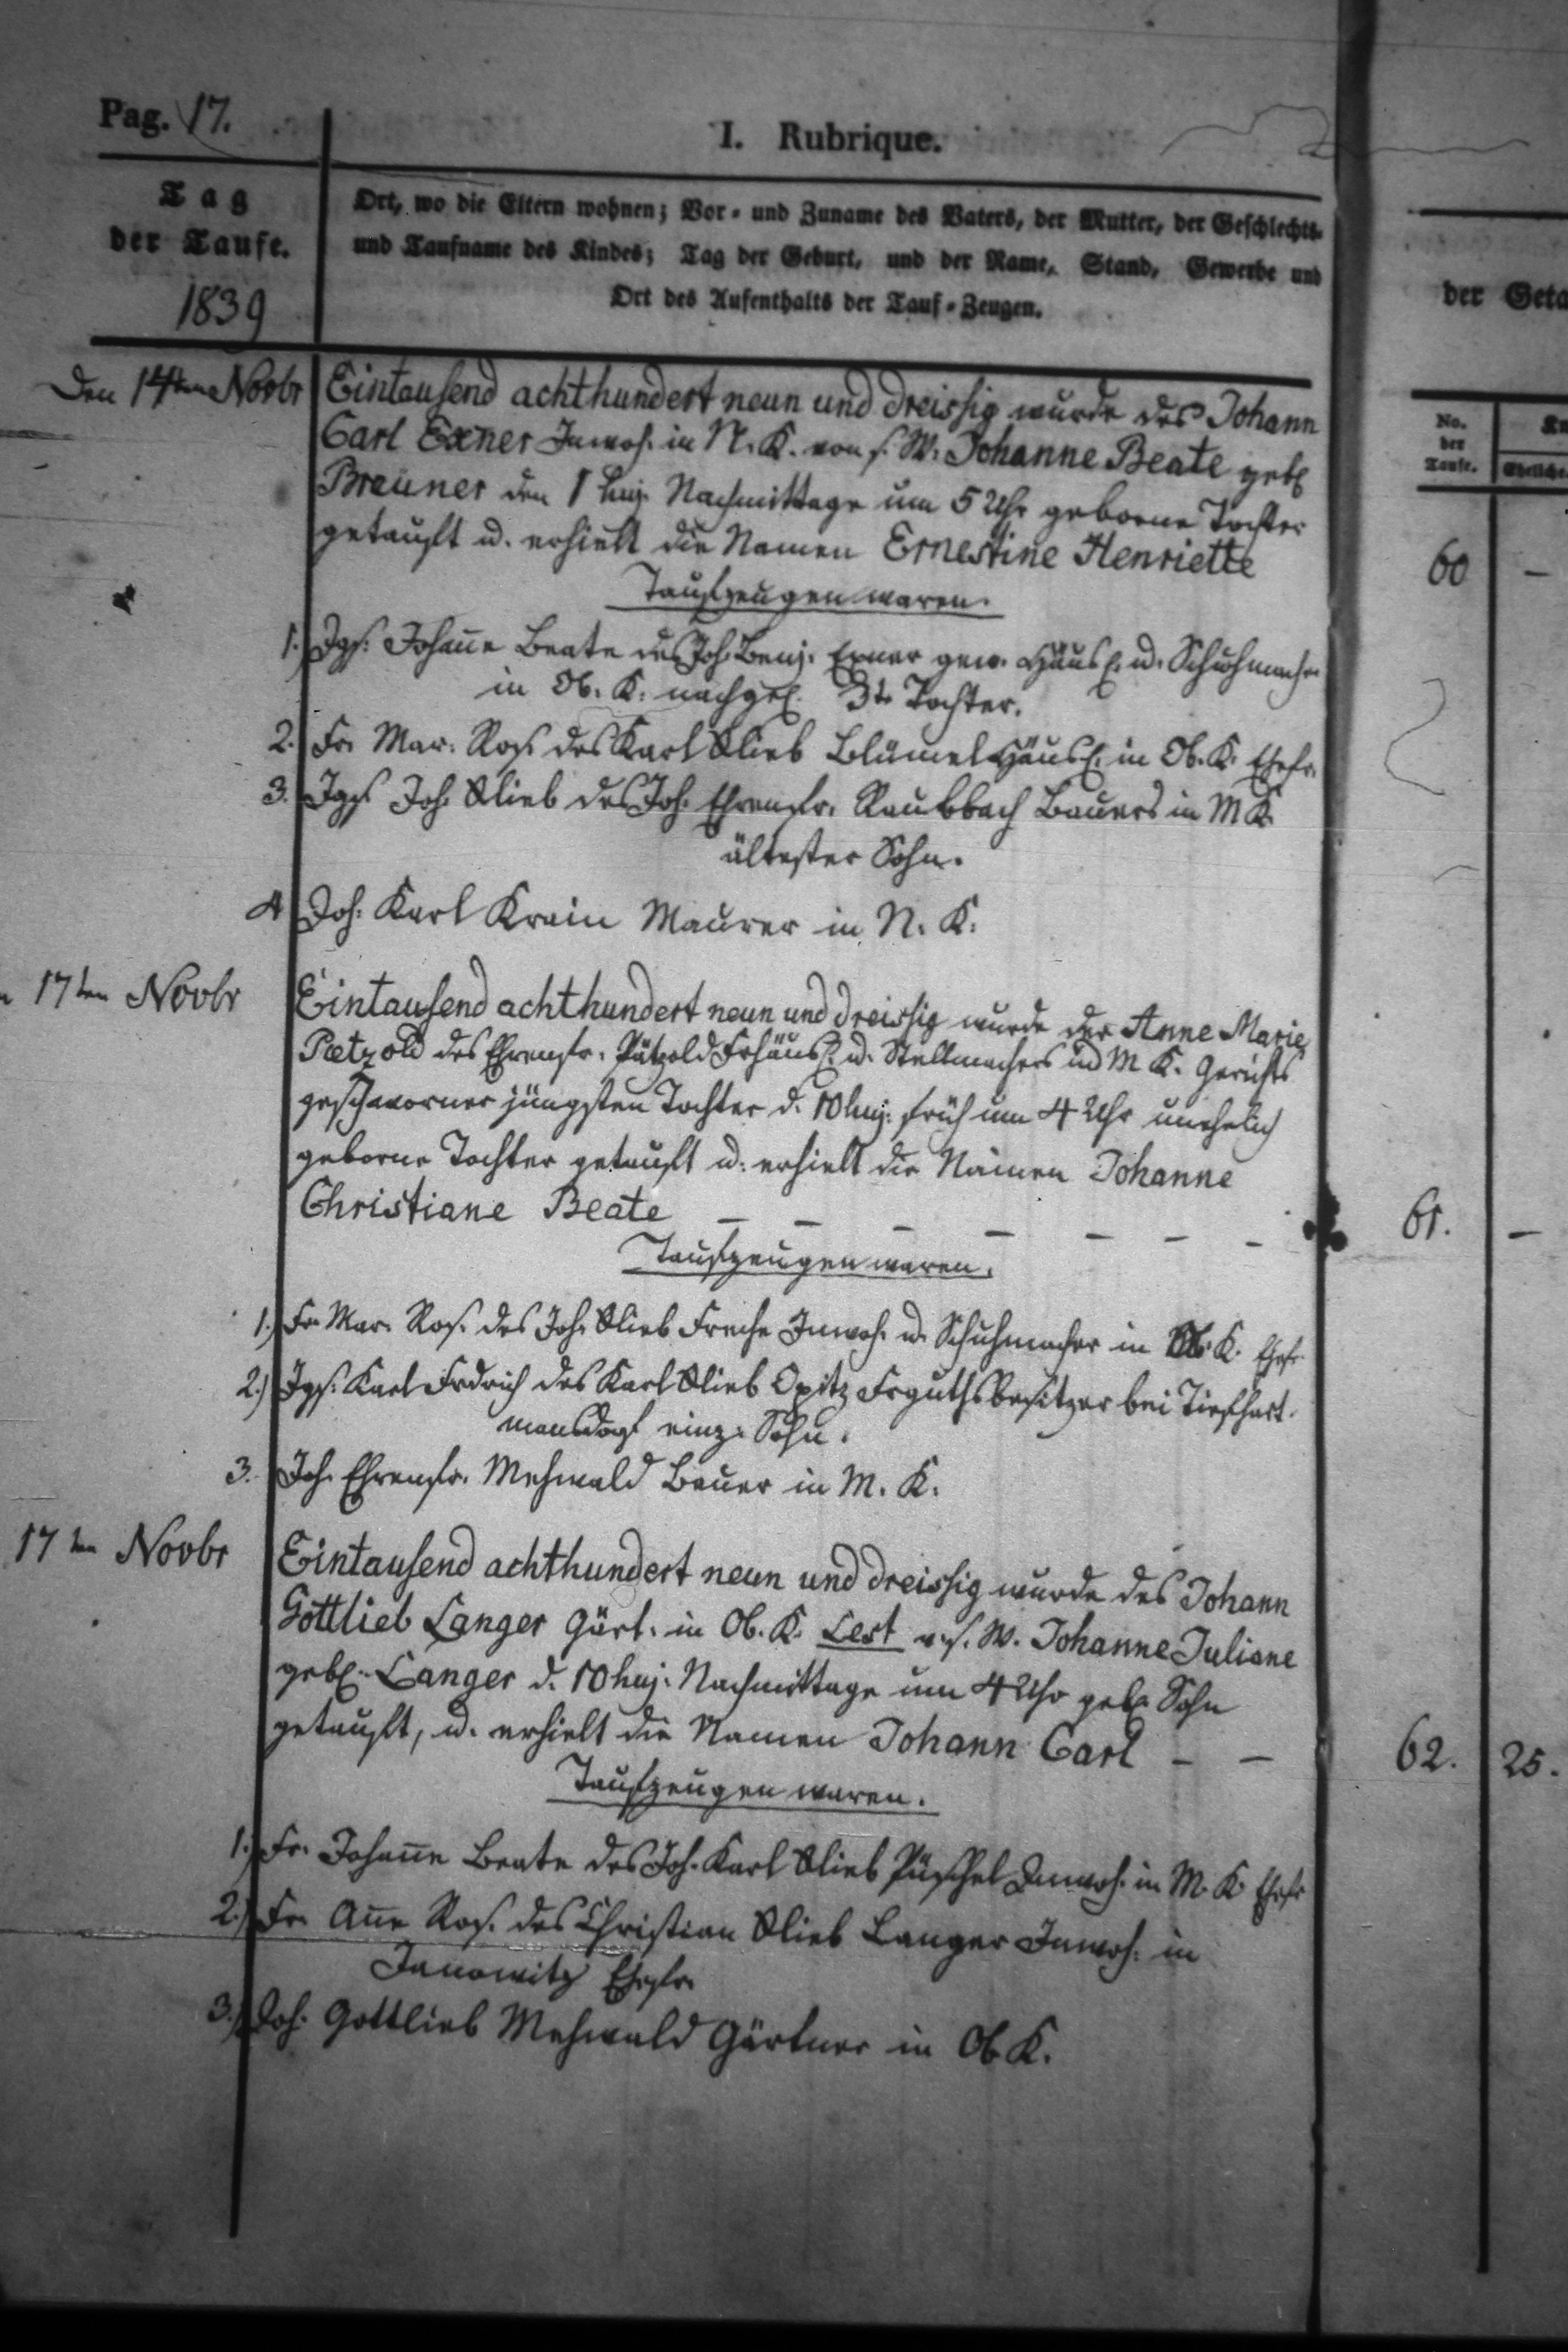 Pag. 17.
I. Rubrique.
Tag
der Taufe.
1839
Ort, wo die Eltern wohnen; Vor- und Zuname des Vaters, der Mutter, der Geschlechts-
und Taufname des Kindes; Tag der Geburt, und der Name, Stand, Gewerbe und
Ort des Aufenthalts der Tauf-Zeugen.
der Geta
No.
der
Taufe.
Eheliche
Den 14ten Novbr Eintausend achthundert neun und dreissig wurde des Johann
Carl Exner Inwoh. in N. K. von s. W. Johanne Beate geb.
Breuner den 1 huj. Nachmittags um 5 Uhr geborne Tochter
getauft u. erhielt die Namen Ernestine Henriette
60 —
Taufzeugen waren.
1. Jgf. Johañe Beate des Joh. Benj. Exner gew. Häusl. u. Schuhmacher
in Ob. K. nachgel. 3te Tochter.
2. Fr. Mar. Ros. des Karl Glieb Blümel Häusl. in Ob. K. Ehefr.
3. Jggs. Joh. Glieb des Joh. Ehrenfr. Raubbach Bauers in M K.
ältester Sohn.
4 Joh. Karl Krain Maurer in N. K.
17ten Novbr Eintausend achthundert neun und dreissig wurde der Anne Marie
Paetzold des Ehrenfr. Pätzold Frhäusl. u. Stellmachers in M K. Gerichts
geschworner jüngsten Tochter d. 10 huj. früh um 4 Uhr unehelich
geborne Tochter getauft u. erhielt die Namen Johanne
Christiane Beate — — — — — — —
61. —
Taufzeugen waren.
1.) Fr. Mar. Ros. des Joh. Glieb Freche Inwoh. u. Schuhmacher in Ob. K. Ehefr.
2.) Jggs. Karl Frdrich des Karl Glieb Opitz Frguthsbesitzer bei Tiefhart-
mansdorf einz. Sohn.
3. Joh. Ehrenfr. Mehwald Bauer in M. K.
17ten Novbr Eintausend achthundert neun und dreissig wurde des Johann
Gottlieb Langer Gärt. in Ob. K. Lest v. s. W. Johanne Juliane
geb. Langer d. 10 huj. Nachmittags um 4 Uhr geb. Sohn
getauft, u. erhielt die Namen Johann Carl — —
62. 25.
Taufzeugen waren.
1.) Fr. Johañe Beate des Joh. Karl Glieb Püschel Inwoh. in M. K. Ehefr
2.) Fr. Añe Ros. des Christian Glieb Langer Inwoh. in
Janowitz Ehefr.
3.) Joh. Gottlieb Mehwald Gärtner in Ob K.